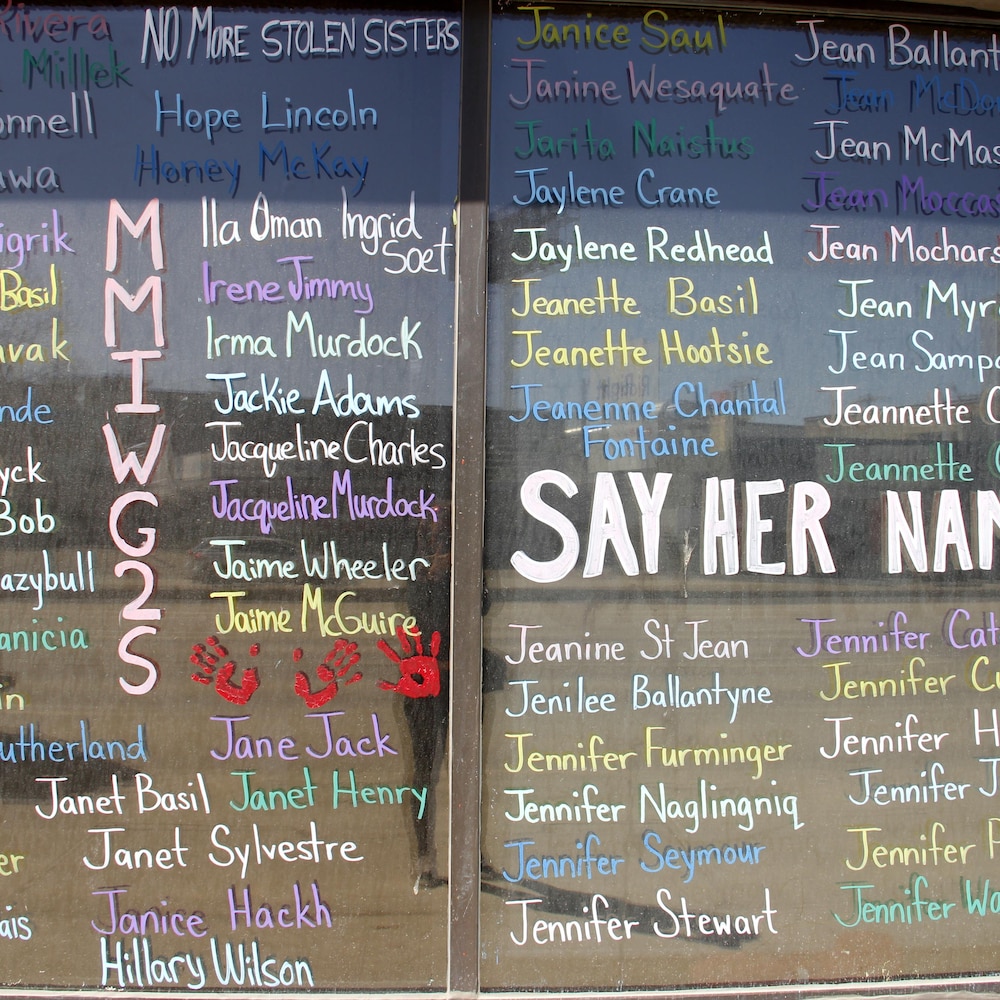 Rivera
Millek
NO MORE STOLEN SISTERS
onnell
Hope Lincoln
awa
Honey McKay
MMIWG2S
Ila Oman Ingrid
Soet
igrik
Irene Jimmy
Basil
Irma Murdock
avak
Jackie Adams
nde
Jacqueline Charles
yck
Jacqueline Murdock
Bob
Jaime Wheeler
azybull
Jaime McGuire
anicia
in
utherland
Jane Jack
Janet Basil
Janet Henry
er
Janet Sylvestre
ais
Janice Hackh
Hillary Wilson
Janice Saul
Janine Wesaquate
Jarita Naistus
Jaylene Crane
Jaylene Redhead
Jeanette Basil
Jeanette Hootsie
Jeanenne Chantal
Fontaine
Jean Ballant
Jean McDo
Jean McMas
Jean Moccas
Jean Mochars
Jean Myr
Jean Sampa
Jeannette C
Jeannette
SAY HER NAM
Jeanine St Jean
Jenilee Ballantyne
Jennifer Furminger
Jennifer Naglingniq
Jennifer Seymour
Jennifer Stewart
Jennifer Cat
Jennifer Cu
Jennifer H
Jennifer J
Jennifer P
Jennifer Wa